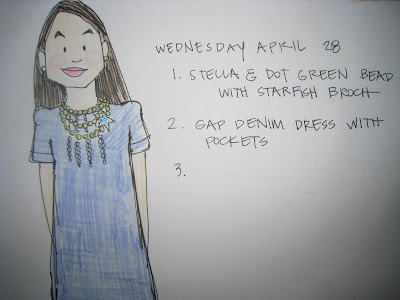 WEDNESDAY APRIL 28
1. STELLA & DOT GREEN BEAD
WITH STARFISH BROCH
2. GAP DENIM DRESS WITH
POCKETS
3.